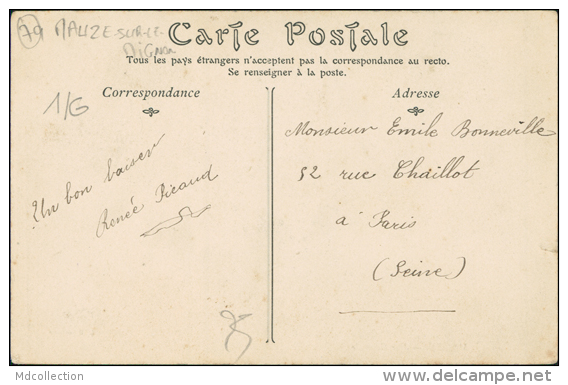 79 MAUZE-SUR-LE-
MIGNON
Carte Postale
Tous les pays étrangers n'acceptent pas la correspondance au recto.
Se renseigner à la poste.
1/G
Correspondance
Un bon baiser
Renée Picaud
Adresse
Monsieur Emile Bonneville
52 rue Chaillot
à Paris
(Seine)
Mdcollection
delcampe.net